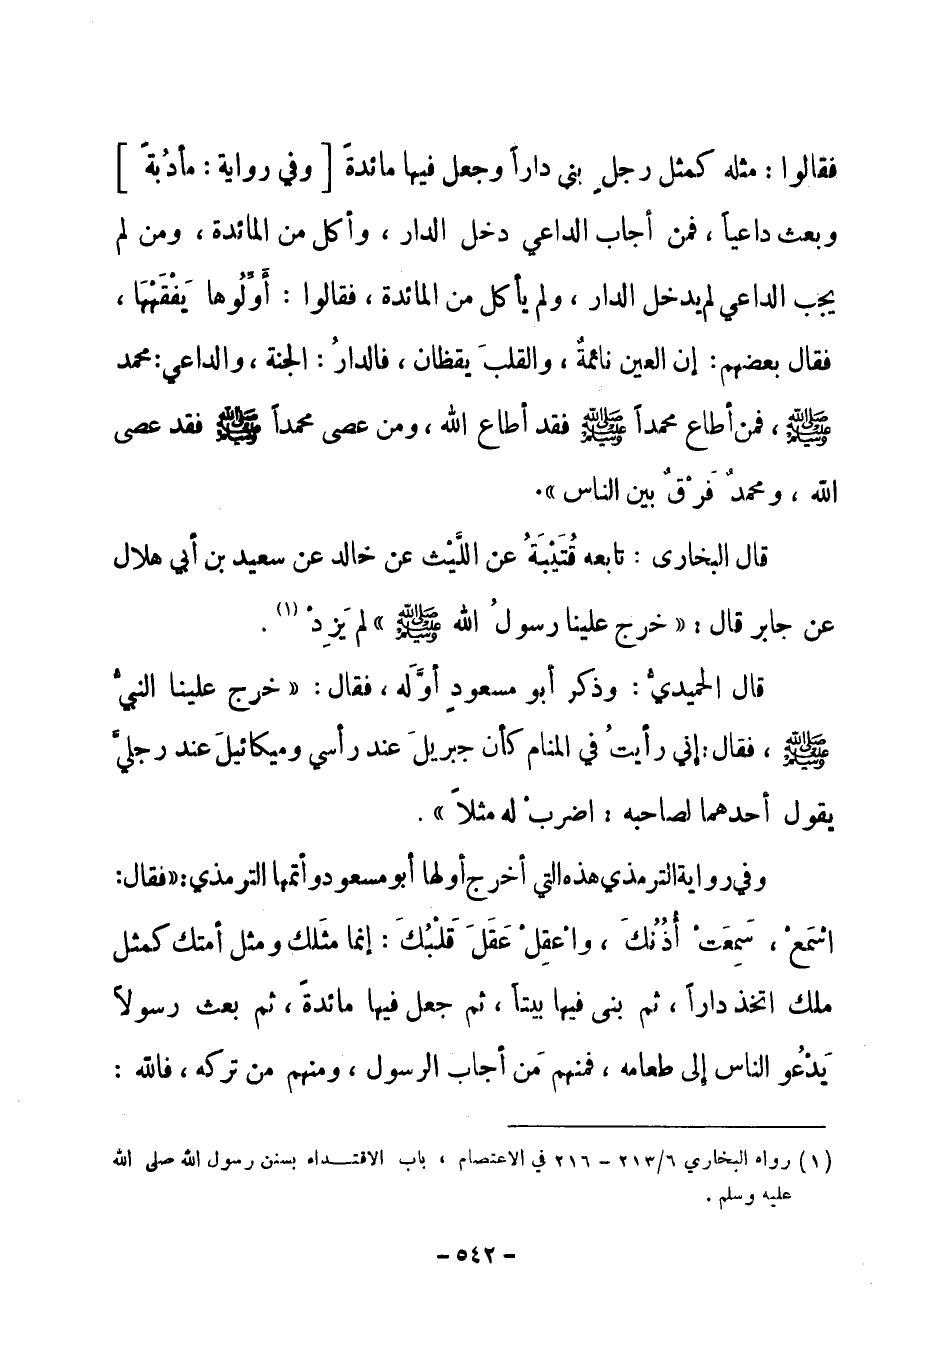 فقالوا : مثله كمثل رجلٍ بنى داراً وجعل فيها مائدةً [ وفي رواية : مأدُبةً ]
وبعث داعياً ، فمن أجاب الداعي دخل الدار ، وأكل من المائدة ، ومن لم
يجب الداعي لم يدخل الدار ، ولم يأكل من المائدة ، فقالوا : أَوِّلُوها يَفْقَهْهَا ،
فقال بعضهم : إن العين نائمةٌ ، والقلبَ يقظان ، فالدارُ : الجنة ، والداعي : محمد
ﷺ ، فمن أطاع محمداً ﷺ فقد أطاع الله ، ومن عصى محمداً ﷺ فقد عصى
الله ، ومحمدٌ فَرْقٌ بين الناس » .
قال البخارى : تابعه قُتَيْبَةُ عن اللَّيْث عن خالد عن سعيد بن أبي هلال
عن جابر قال : « خرج علينا رسولُ الله ﷺ » لم يَزِدْ (١) .
قال الحميديُّ : وذكر أبو مسعودٍ أوَّله ، فقال : « خرج علينا النبيُّ
ﷺ ، فقال : إني رأيتُ في المنام كأن جبريلَ عند رأسي وميكائيلَ عند رجليَّ
يقول أحدهما لصاحبه : اضربْ له مثلاً » .
وفي رواية الترمذي هذه التي أخرج أولها أبو مسعود وأتمها الترمذي : « فقال :
اسْمَعْ ، سَمِعَتْ أُذُنُكَ ، واعْقِلْ عَقَلَ قَلْبُكَ : إنما مثَلك ومثل أمتك كمثل
ملك اتخذ داراً ، ثم بنى فيها بيتاً ، ثم جعل فيها مائدةً ، ثم بعث رسولاً
يَدْعُو الناس إلى طعامه ، فمنهم مَن أجاب الرسول ، ومنهم من تركه ، فالله :
(١) رواه البخاري ٢١٣/٦ – ٢١٦ في الاعتصام ، باب الاقتــداء بسنن رسول الله صلى الله
عليه وسلم .
– ٥٤٢ –